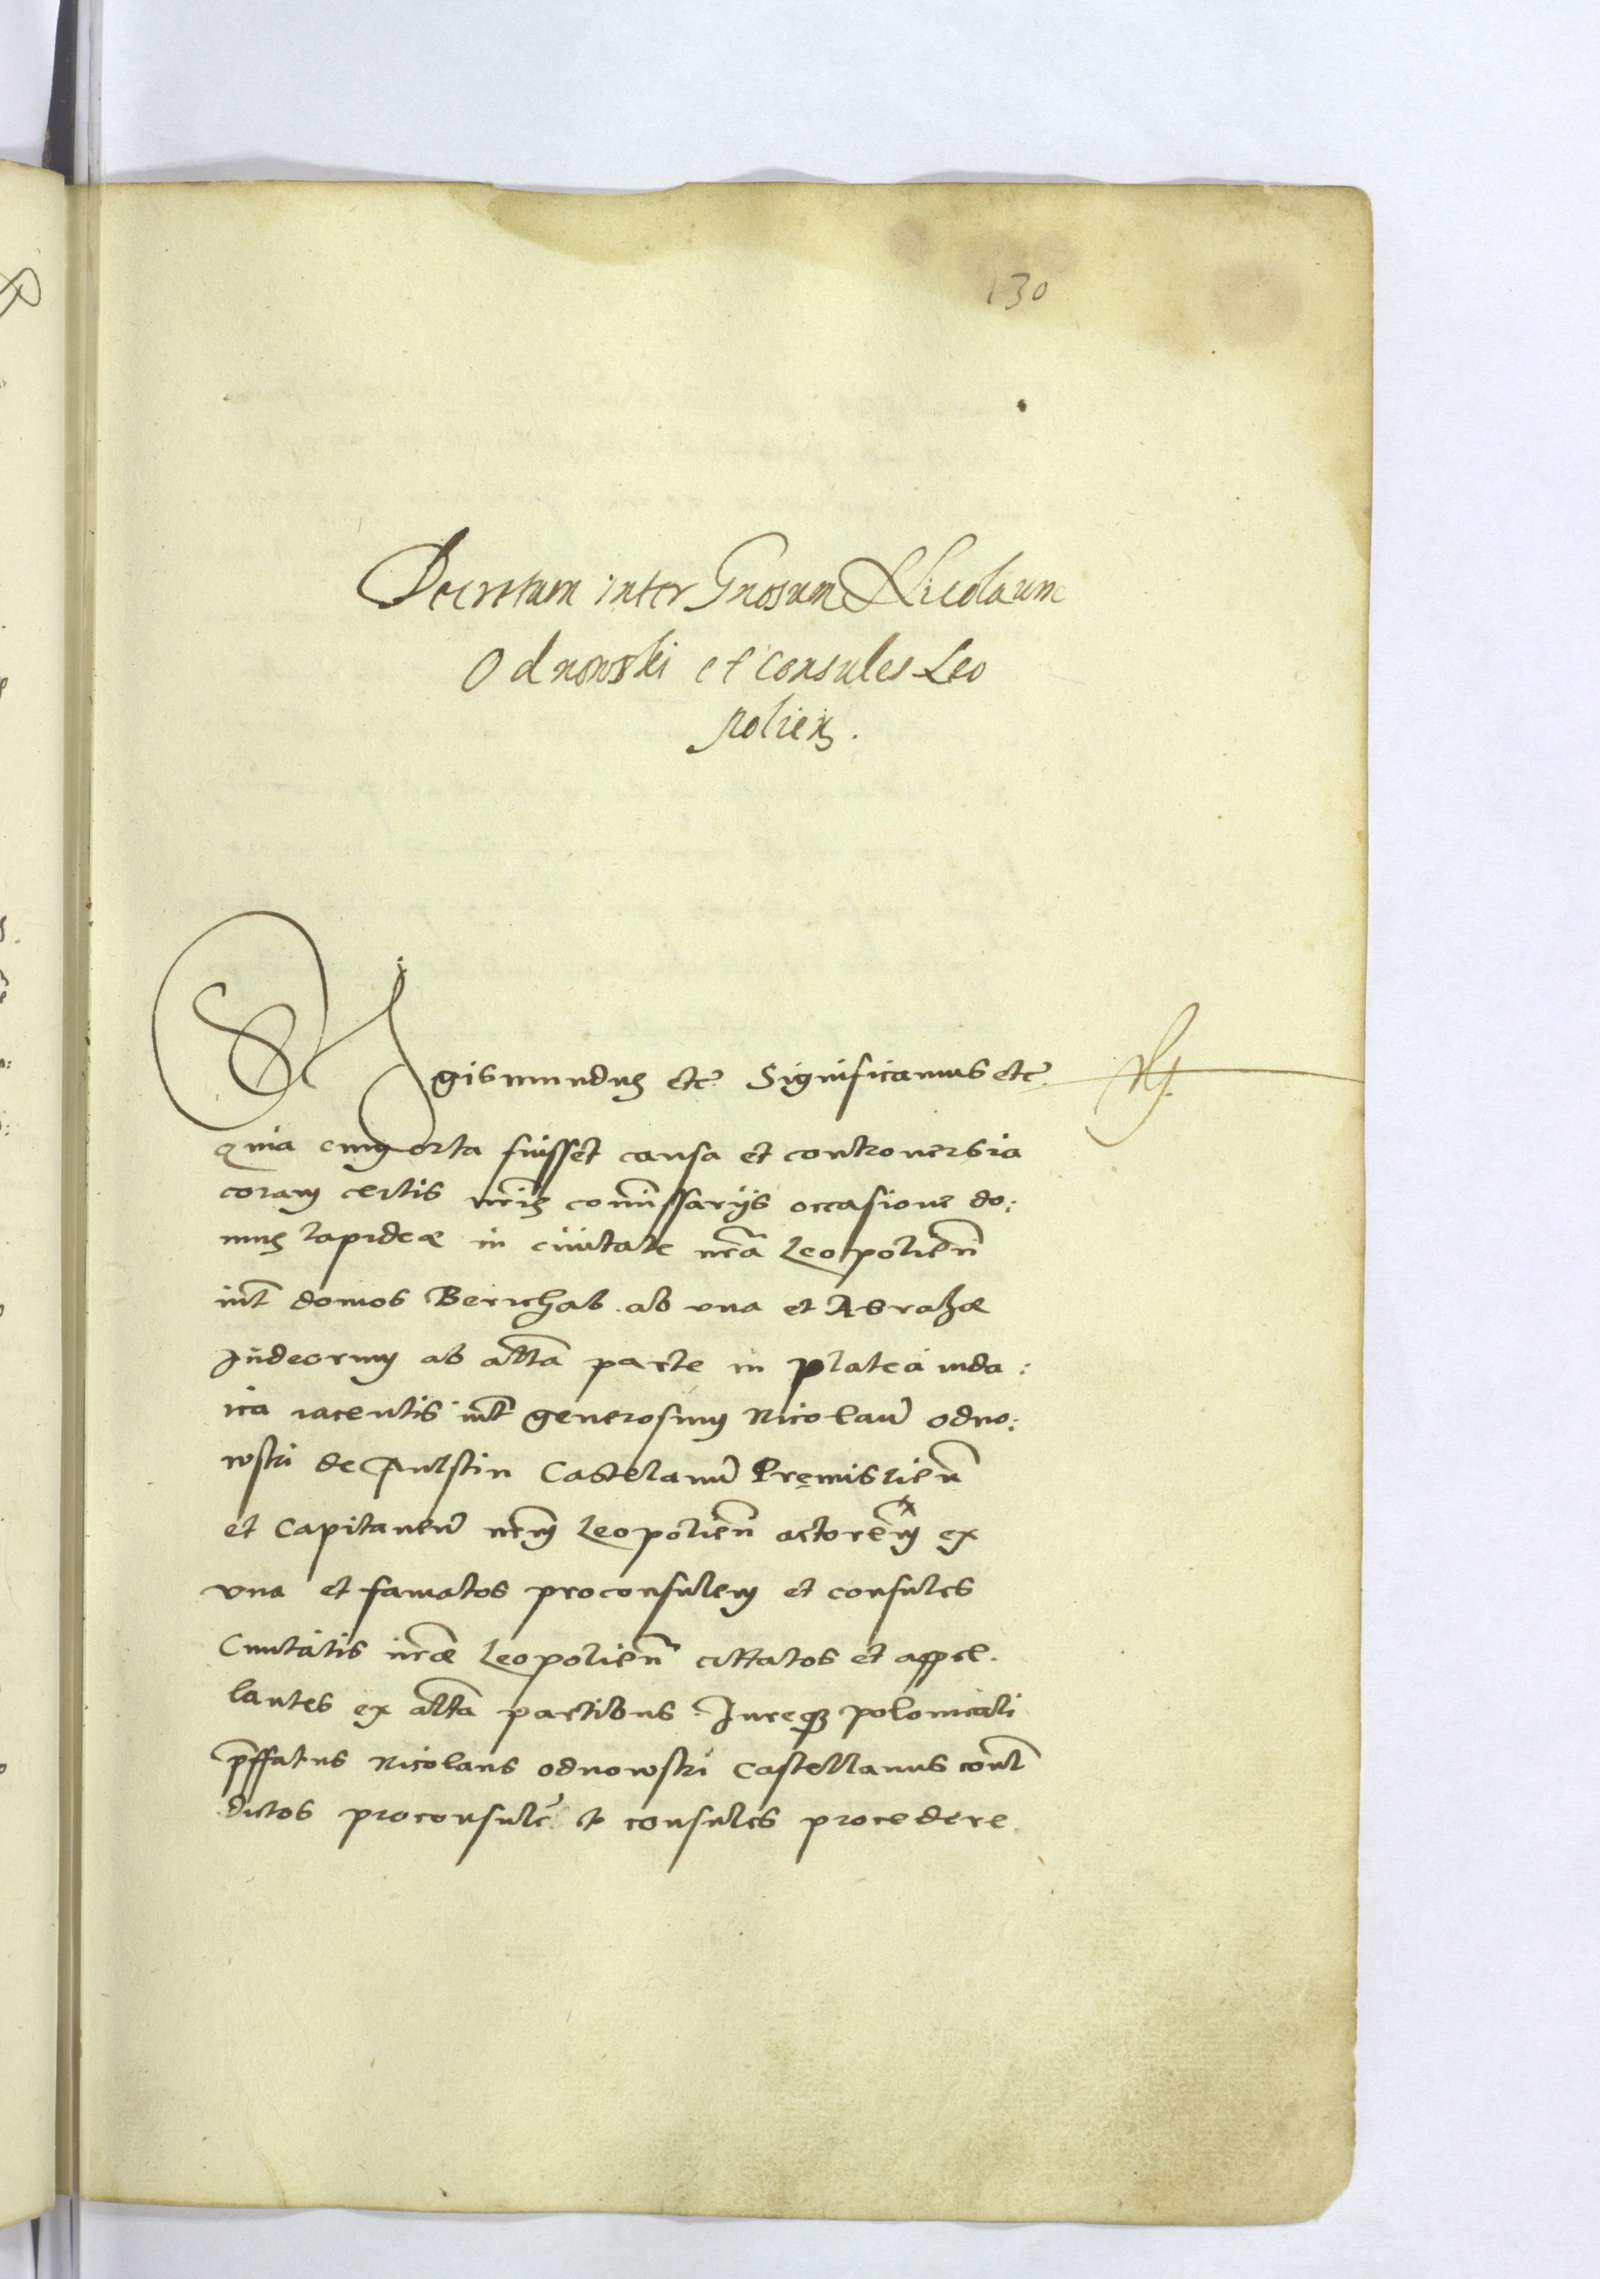 130
Decretum inter Gnosum Nicolaum
Odnowski et Consules Leo
polien̄.
Sigismundus etc̄ Significamus etc̄
quia cum orta fuisset causa et controuersia
coram certis nr̄is com̄issarijs occasione do:
mus lapideæ in ciuitate nr̄a Leopolien̄
int̄ domos Berichab ab una et Abrahæ
Judeorum ab alt̄a parte in platea iuda:
ica iacentis int̄ generosum Nicolaū odno:
wski de Fulstin Castelanū Premislien̄
et Capitaneū nr̄m Leopolien̄ actorem ex
vna et famatos proconsulem et consules
Ciuitatis nr̄æ Leopolien̄ cittatos et appel.
lantes ex alt̄a partibus. Jureq3 polonicali
p̄ffatus Nicolaus odnowski Castellanus cont̄
dictos proconsulē et consules procedere